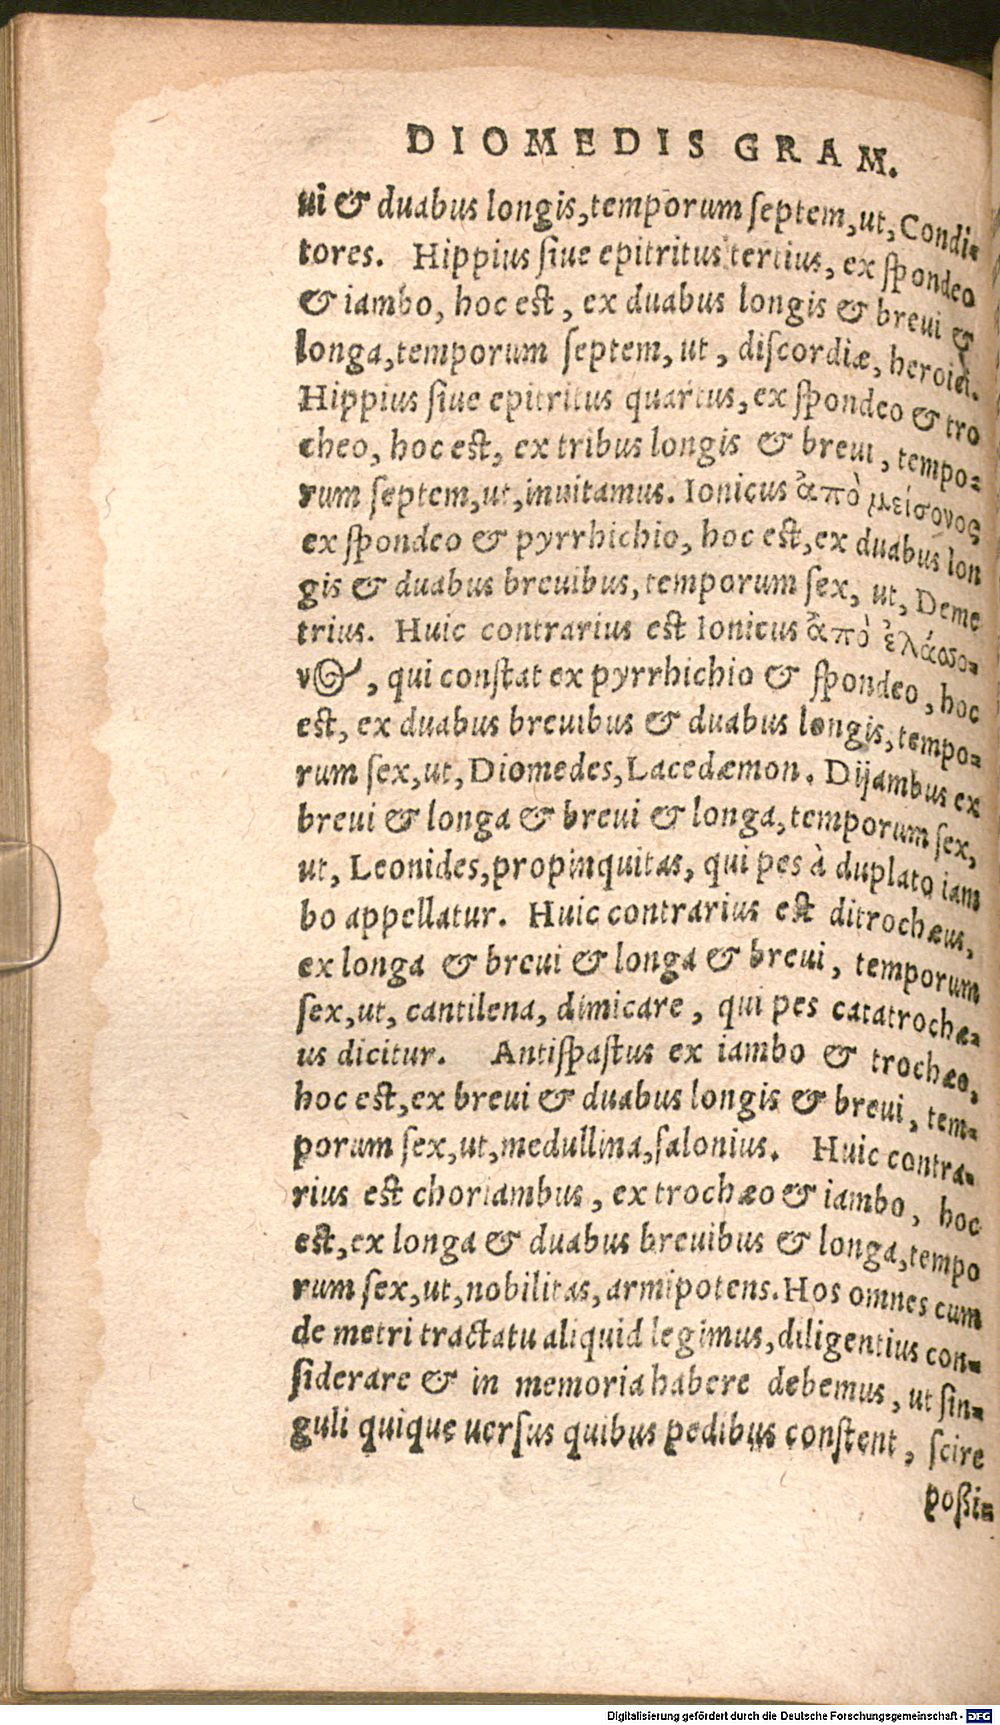 DIOMEDIS GRAM.
ui & duabus longis, temporum ſeptem, ut, Condi-
tores. Hippius ſiue epitritus tertius, ex ſpondeo
& iambo, hoc eſt, ex duabus longis & breui &
longa, temporum ſeptem, ut, diſcordiæ, heroici.
Hippius ſiue epitritus quartus, ex ſpondeo & tro
cheo, hoc eſt, ex tribus longis & breui, tempo-
rum ſeptem, ut, inuitamus. Ionicus ἀπὸ μείσονος
ex ſpondeo & pyrrhichio, hoc eſt, ex duabus lon
gis & duabus breuibus, temporum ſex, ut, Deme
trius. Huic contrarius est Ionicus ἀπὸ ἐλάσσο-
νος, qui conſtat ex pyrrhichio & ſpondeo, hoc
eſt, ex duabus breuibus & duabus longis, tempo-
rum ſex, ut, Diomedes, Lacedæmon. Dijambus ex
breui & longa & breui & longa, temporum ſex,
ut, Leonides, propinquitas, qui pes à duplato iam
bo appellatur. Huic contrarius eſt ditrochæus,
ex longa & breui & longa & breui, temporum
ſex, ut, cantilena, dimicare, qui pes catatrochæ-
us dicitur. Antiſpaſtus ex iambo & trochæo,
hoc eſt, ex breui & duabus longis & breui, tem-
porum ſex, ut, medullina, ſalonius. Huic contra-
rius eſt choriambus, ex trochæo & iambo, hoc
eſt, ex longa & duabus breuibus & longa, tempo
rum ſex, ut, nobilitas, armipotens. Hos omnes cum
de metri tractatu aliquid legimus, diligentius con-
ſiderare & in memoria habere debemus, ut ſin-
guli quique uerſus quibus pedibus conſtent, ſcire
poßi-
Digitalisierung gefördert durch die Deutsche Forschungsgemeinschaft - DFG